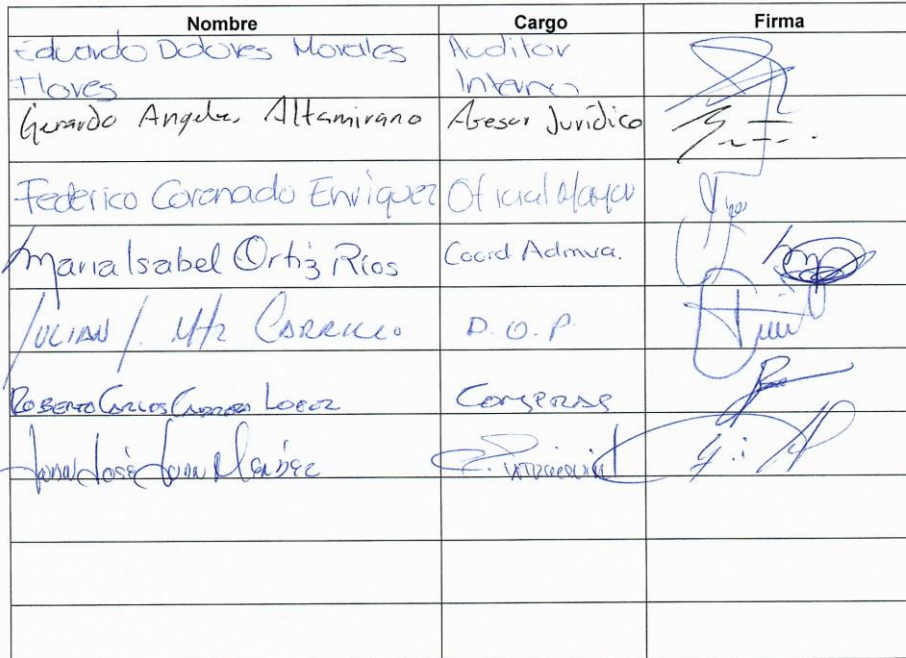 Nombre Cargo Firma
Eduardo Dolores Morales Auditor
Flores Interno
Gerardo Angeles Altamirano Asesor Jurídico
Federico Coronado Enriquez Oficial Mayor
Maria Isabel Ortiz Rios Coord Admva.
JULIAN J. Mtz CARRILLO D.O.P.
ROBERTO CARLOS LOPEZ
Juan José